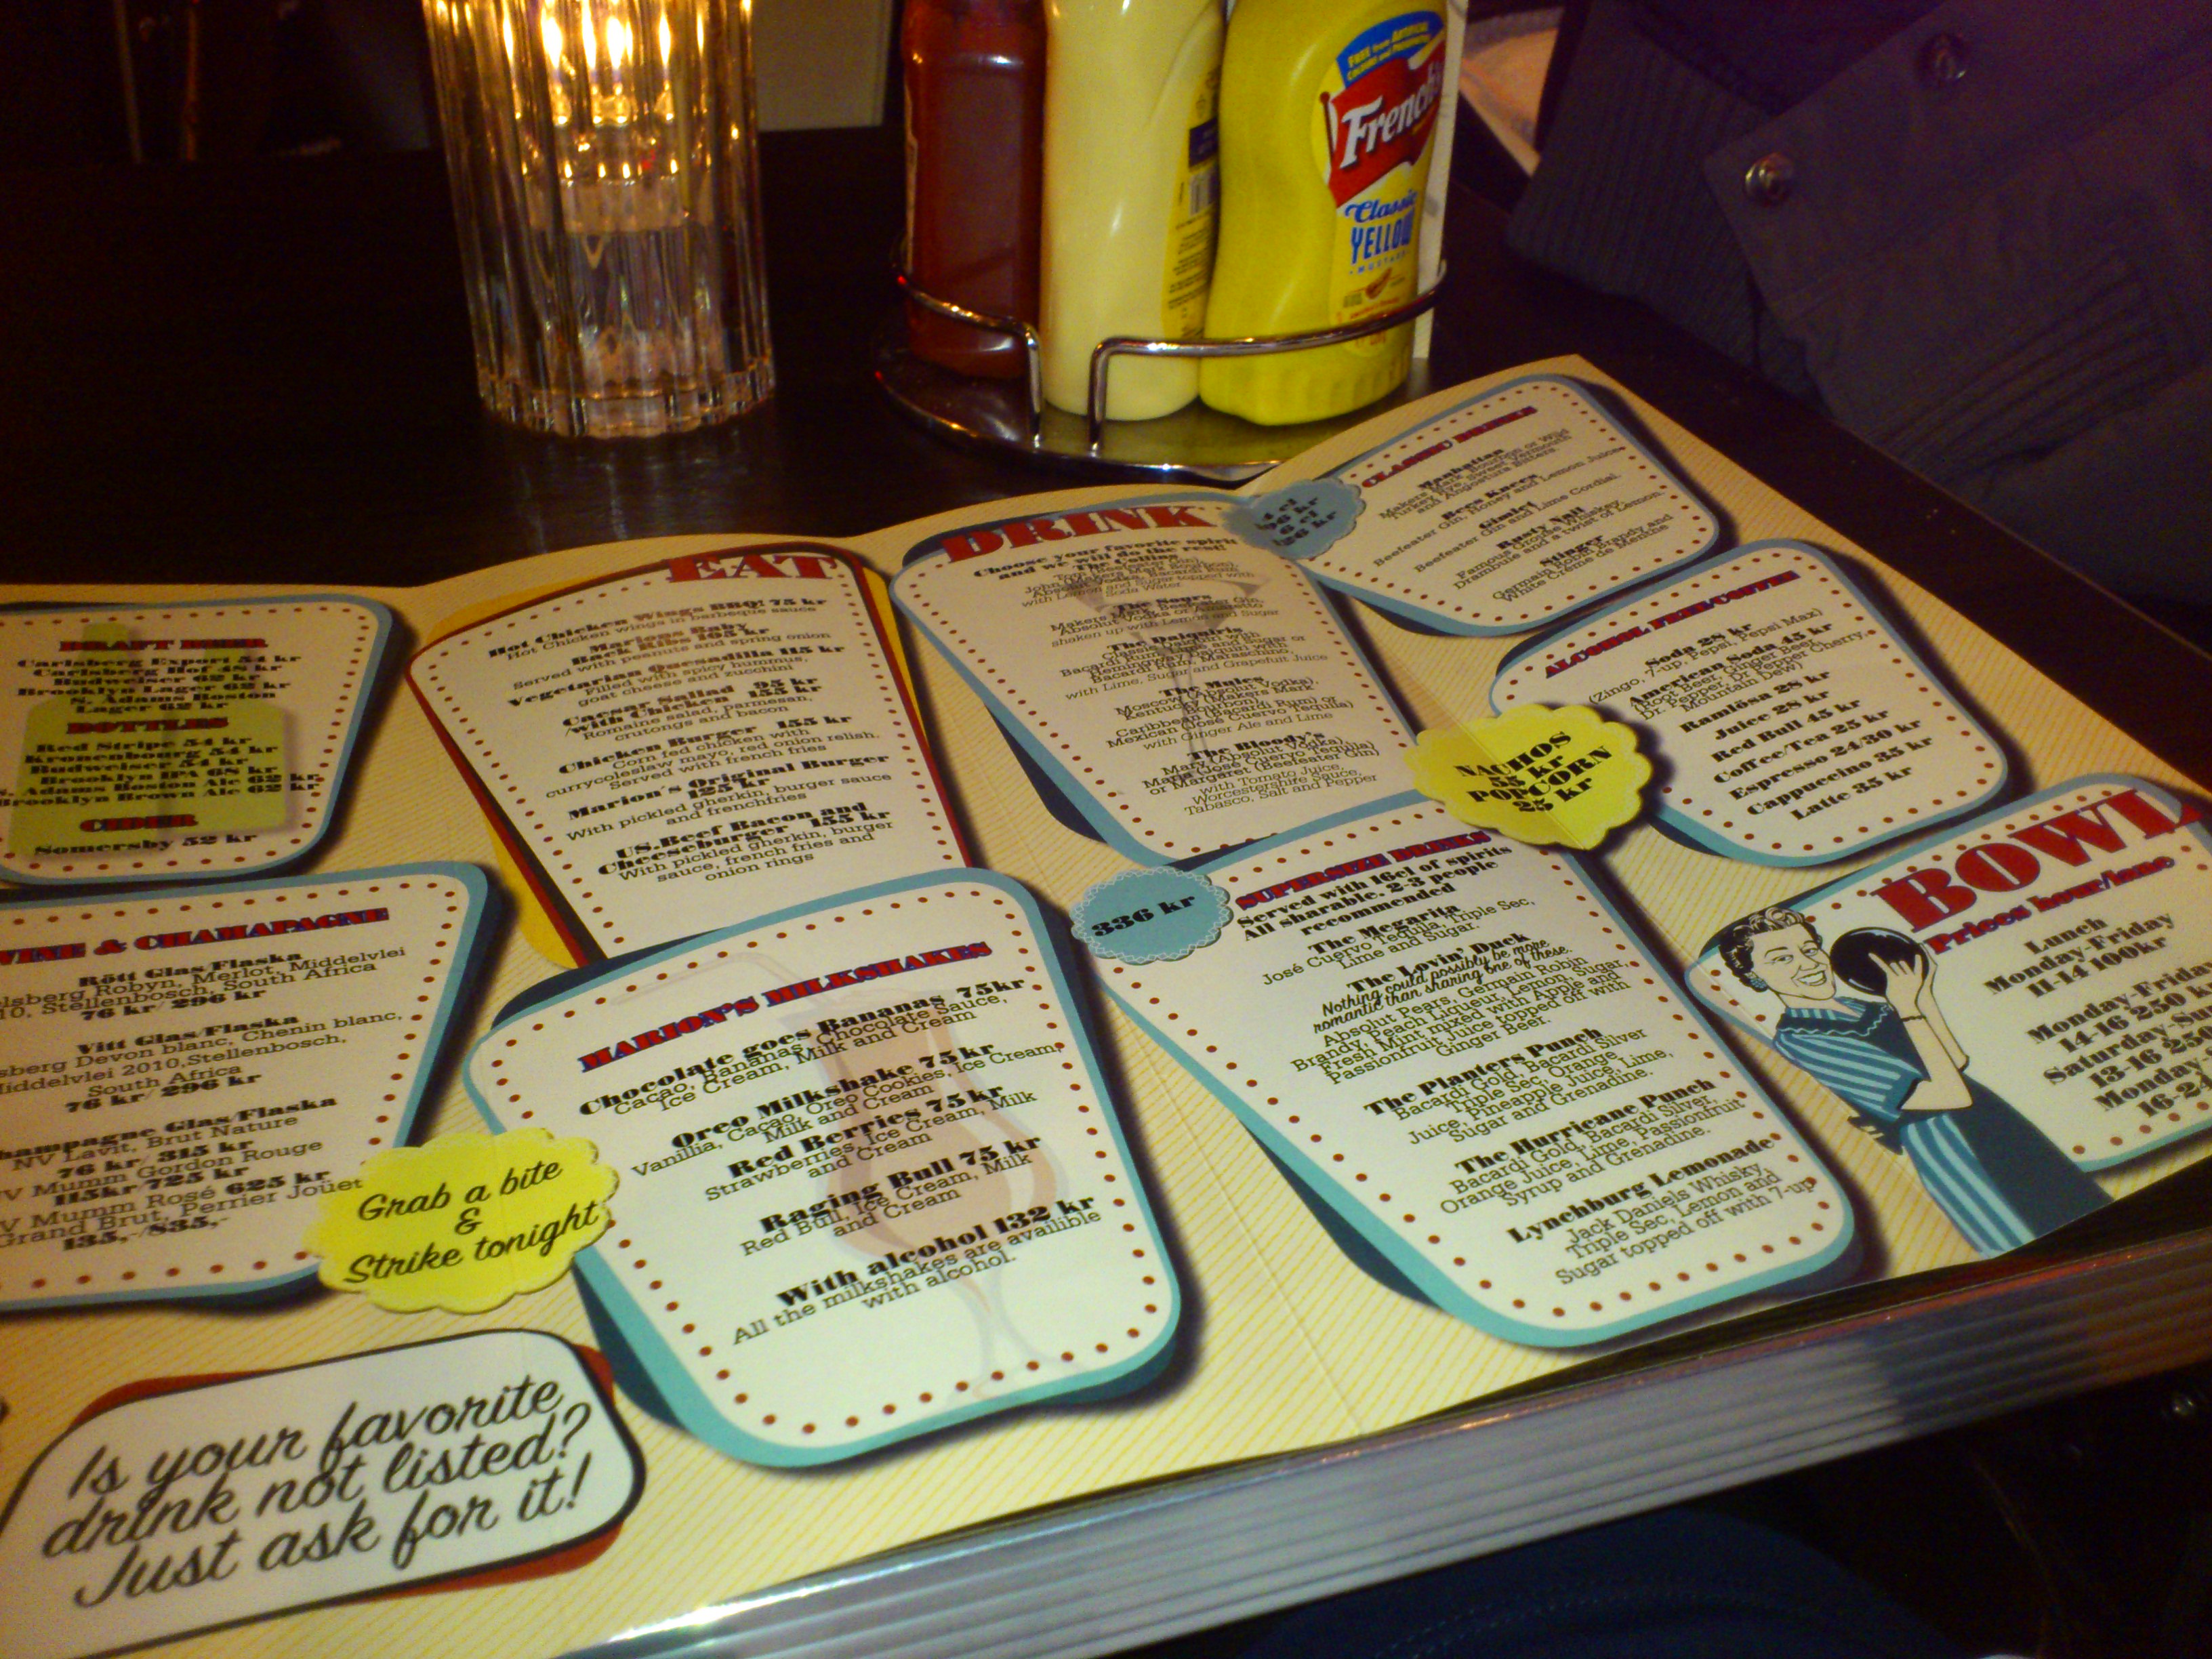 FREE from ARTIFICIAL
COLORS and
French's
Classic
YELLOW
MUSTARD
DRAFT BEER
Carlsberg Export 54 kr
Carlsberg Hof 48 kr
Budweiser 62 kr
Brooklyn Lager 62 kr
S. Adams Boston
Lager 62 kr
BOTTLES
Red Stripe 54 kr
Kronenbourg 54 kr
Budweiser 54 kr
Brooklyn IPA 68 kr
S. Adams Boston Ale 62 kr
Brooklyn Brown Ale 62 kr
CIDER
Somersby 52 kr
WINE & CHAMAPAGNE
Rött Glas/Flaska
elsberg Robyn, Merlot, Middelvlei
10, Stellenbosch, South Africa
76 kr/ 296 kr
Vitt Glas/Flaska
sberg Devon blanc, Chenin blanc,
Middelvlei 2010, Stellenbosch,
South Africa
76 kr/ 296 kr
hampagne Glas/Flaska
NV Lavit, Brut Nature
76 kr/ 315 kr
V Mumm Gordon Rouge
115kr 725 kr
V Mumm Rosé 625 kr
Grand Brut, Perrier Jouet
135,-/835,-
Grab a bite
&
Strike tonight
Is your favorite
drink not listed?
Just ask for it!
EAT
Hot Chicken Wings BBQ! 75 kr
Hot Chicken wings in barbeque sauce
Marions Baby
Back Ribs 105 kr
Served with peanuts and spring onion
Vegetarian Quesadilla 115 kr
Filled with spicy hummus,
goat cheese and zucchini
Caesar Sallad 95 kr
/with Chicken 155 kr
Romaine salad, parmesan,
crutongs and bacon
Chicken Burger 155 kr
Corn fed chicken with
currycoleslaw mayo, red onion relish.
Served with french fries
Marion's Original Burger
125 kr
With pickled gherkin, burger sauce
and frenchfries
US.Beef Bacon and
Cheeseburger 155 kr
With pickled gherkin, burger
sauce, french fries and
onion rings
MARION'S MILKSHAKES
Chocolate goes Bananas 75kr
Cacao, Bananas, Chocolate Sauce,
Ice Cream, Milk and Cream
Oreo Milkshake 75 kr
Vanillia, Cacao, Oreo Cookies, Ice Cream,
Milk and Cream
Red Berries 75 kr
Strawberries, Ice Cream, Milk
and Cream
Raging Bull 75 kr
Red Bull, Ice Cream, Milk
and Cream
With alcohol 132 kr
All the milkshakes are availible
with alcohol.
DRINK
Choose your favorite spirit
and we will do the rest!
The Collins
with Lemon and Sugar topped with
Soda Water
The Sours
Makers Mark, Beefeater Gin,
Absolut Vodka or Amaretto
shaken up with Lemon and Sugar
The Daiquiris
Classic Daiquiri with
Bacardi Rum, Lime and Sugar or
Hemingway Daiquiri with
Bacardi Rum, Maraschino,
with Lime, Sugar and Grapefuit Juice
The Mules
Moscow (Absolut Vodka),
Kentucky (Makers Mark
Bourbon),
Caribbean (Bacardi Rum) or
Mexican (José Cuervo Tequila)
with Ginger Ale and Lime
The Bloody's
Mary (Absolut Vodka),
Maria (José Cuervo Tequila)
or Margaret (Beefeater Gin)
with Tomato Juice,
Worcestershire Sauce,
Tabasco, Salt and Pepper
4 cl
96 kr
6 cl
126 kr
CLASSIC DRINKS
Manhattan
Makers Mark Bourbon or Wild
Turkey Rye, Sweet Vermouth
and Angostura Bitters.
Bees Knees
Beefeater Gin, Honey and Lemon Juice.
Gimlet
Beefeater Gin and Lime Cordial.
Rusty Nail
Famous Grouse Whiskey,
Drambuie and a twist of Lemon.
Stinger
Germain Robin Brandy and
White Crème de Menthe
ALCOHOL FREE/COFFEE
Soda 28 kr
(Zingo, 7-up, Pepsi, Pepsi Max)
American Soda 45 kr
(Root Beer, Ginger Beer,
Dr. Pepper, Dr Pepper Cherry,
Mountain Dew)
Ramlösa 28 kr
Juice 28 kr
Red Bull 45 kr
Coffee/Tea 25 kr
Espresso 24/30 kr
Cappuccino 35 kr
Latte 35 kr
NACHOS
55 KR
POPCORN
25 kr
336 kr
SUPERSIZE DRINKS
Served with 16cl of spirits
All sharable. 2-3 people
recommended
The Megarita
José Cuervo Tequila, Triple Sec,
Lime and Sugar.
The Lovin' Duck
Nothing could possibly be more
romantic than sharing one of these.
Absolut Pears, Germain Robin
Brandy, Peach Liqueur, Lemon, Sugar,
Fresh Mint mixed with Apple and
Passionfruit Juice topped off with
Ginger Beer.
The Planters Punch
Bacardi Gold, Bacardi Silver
Triple Sec, Orange
Juice, Pineapple Juice, Lime,
Sugar and Grenadine.
The Hurricane Punch
Bacardi Gold, Bacardi Silver,
Orange Juice, Lime, Passionfruit
Syrup and Grenadine.
Lynchburg Lemonade
Jack Daniels Whisky,
Triple Sec, Lemon and
Sugar topped off with 7-up
BOWL
Prices hour/lane
Lunch
Monday-Friday
11-14 100kr
Monday-Friday
14-16 250 k
Saturday-Su
13-16 250
Monday-
16-2